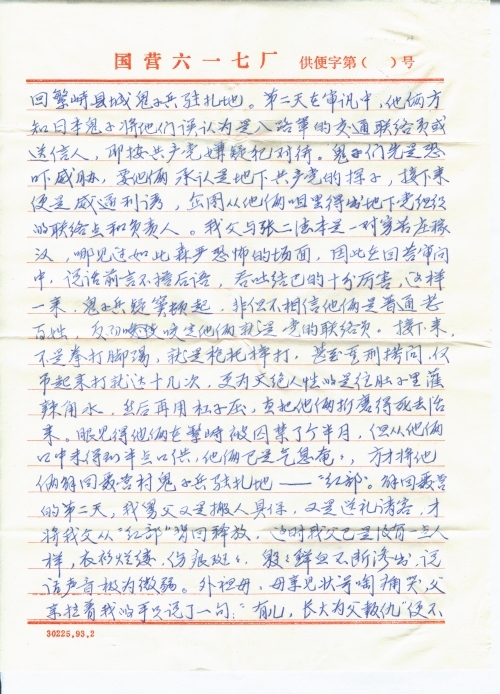 国营六一七厂 供便字第( )号
回繁峙县城鬼子兵驻扎地。第二天在审讯中,他俩方
知日本鬼子将他们误认为是八路军的交通联络员或
送信人,即按共产党嫌疑犯对待。鬼子们先是恐
吓威胁,要他俩承认是地下共产党的探子,接下来
便是威逼利诱,企图从他俩咀里得出地下党组织
的联络点和负责人。我父与张二法本是一对穷苦庄稼
汉,哪见过如此森严恐怖的场面,因此在回答审问
中,说话前言不搭后语,吞吐结巴的十分厉害,这样
一来,鬼子兵疑窦顿起,非但不相信他俩是普通老
百姓,反而咬定他俩就是党的联络员。接下来,
不是拳打脚踢,就是枪托棒打,甚至严刑拷问,仅
吊起来打就达十几次,更为灭绝人性的是往肚子里灌
辣角水,然后再用杠子压,直把他俩折磨得死去活
来。眼见得他俩在繁峙被囚禁了个半月,但从他俩
口中未得到半点口供,他俩已是气息奄々,方才将他
俩解回聂营村鬼子兵驻扎地——“红部”。解回聂营
的第二天,我舅父又是搬人具保,又是送礼请客,才
将我父从“红部”背回释放,这时我父已是没有一点人
样,衣衫烂缕,伤痕斑々,殷々鲜血不断渗出,说
话声音极为微弱。外祖母、母亲见状嚎啕痛哭,父
亲拉着我的手只说了一句:“有儿,长大为父报仇”便不
30225.93.2